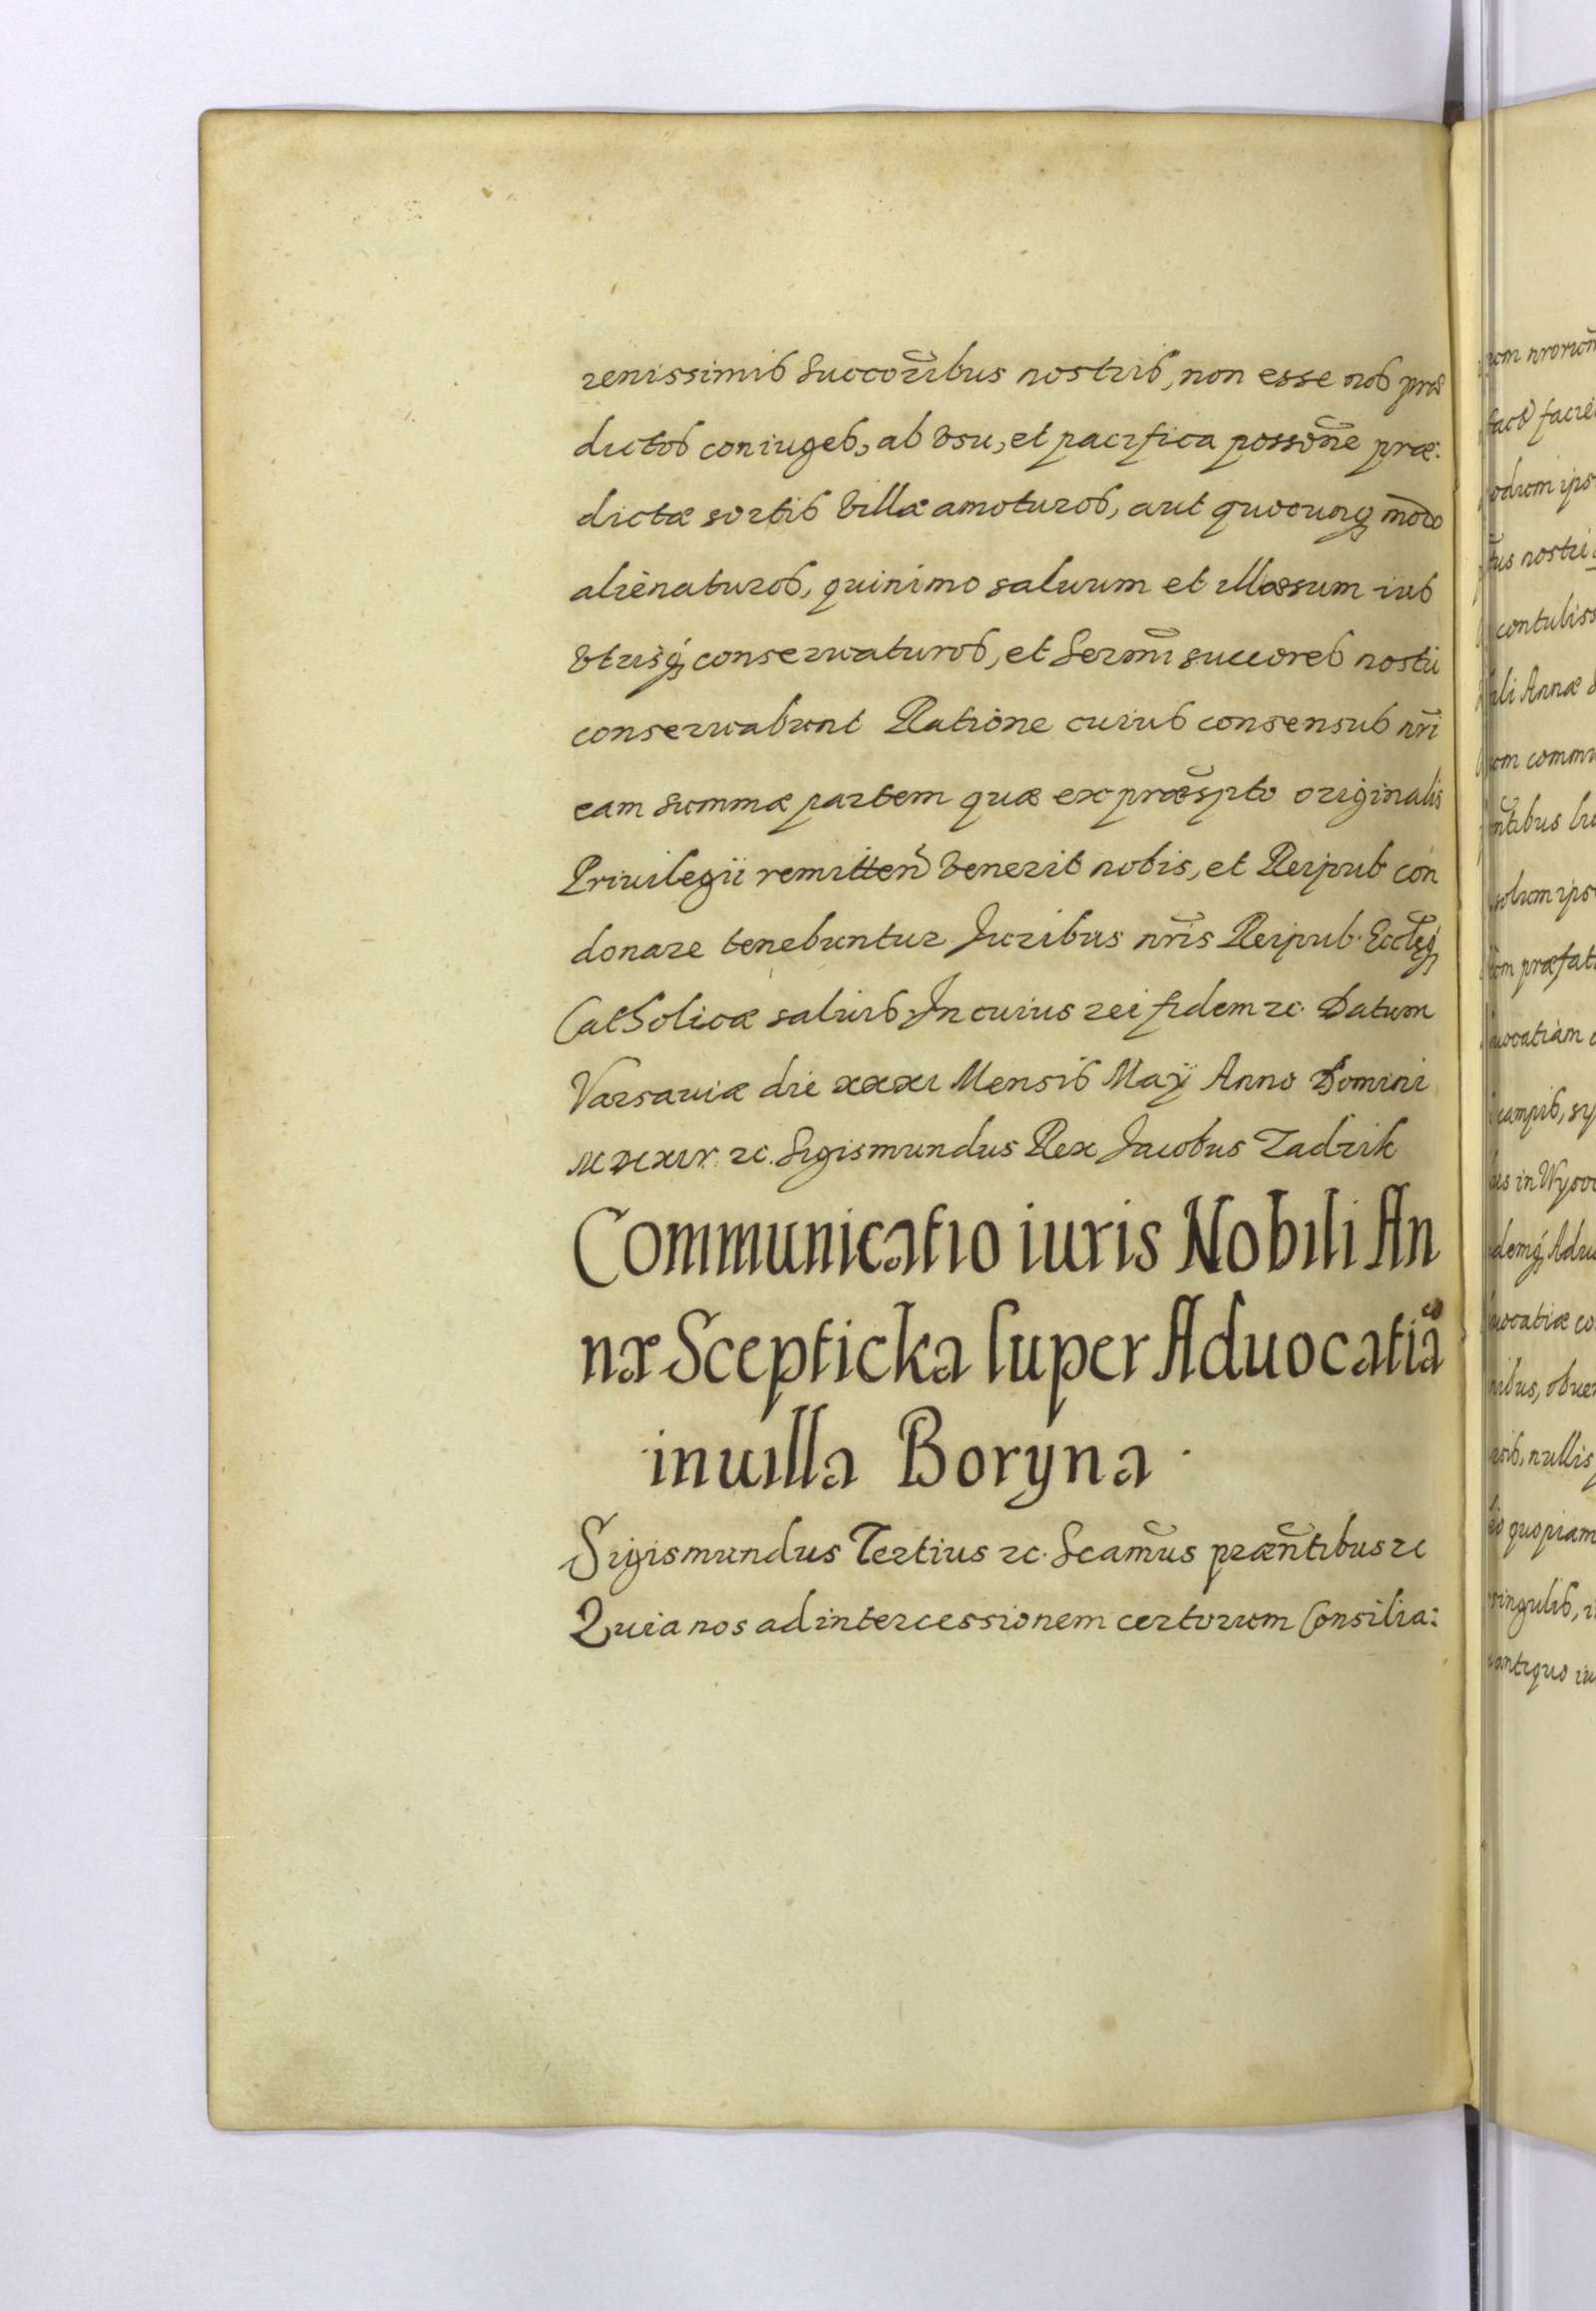 renissimis Succorībus nostris, non esse nos præ
dictos coniuges, ab vsu, et pacifica possōne præ:
dictæ sortis villæ amoturos, aut quocunq́ mōdo
alienaturos, quinimo saluum et illæsum ius
vtrisq́ conseruaturos, et Sermī succores nostri
conseruabunt Ratione cuius consensus nr̄i
eam summæ partem quæ ex præs̄pto originalis
Priuilegii remitten̄ venerit nobis, et Reipub con
donare tenebuntur Juribus nr̄is Reipub. Eccl̄æq́
Catholicæ saluis In cuius rei fidem &c. Datum
Varsauiæ die xxxi Mensis Maÿ Anno Domini
&c. Sigismundus Rex Jacobus Zadzik
Communicatio iuris Nobili An
næ Scepticka super Aduocatiā
in uilla Boryna
Sigismundus Tertius &c. Scam̄us præn̄tibus &c
Quia nos ad intercessionem certorum Consilia:
nostri
contuliss
li Annæ
præfat
campis,
nullis
quopiam
singulis,
antiquo